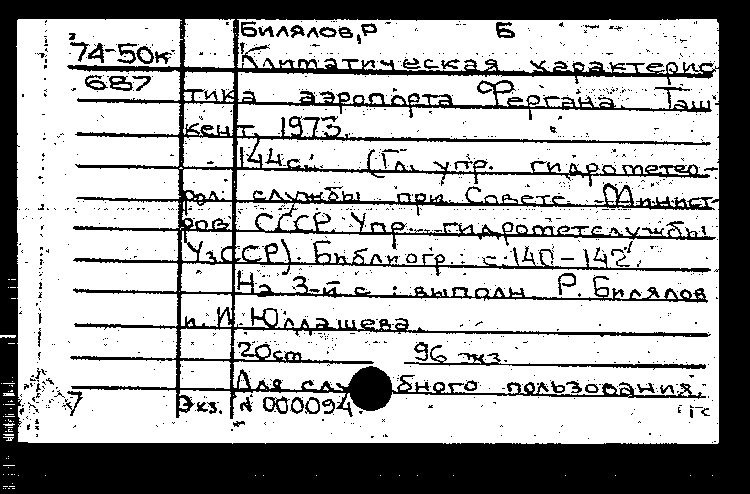 Билялов, Р Б
74-50к Климатическая характерис-
687
тика аэропорта Фергана. Таш-
кент, 1973.
144с. (Гл. упр. гидрометео-
рол. службы при Совете Минист-
ров СССР. Упр. гидрометслужбы
УзССР). Библиогр.: с. 140-142.
На 3-й с.: выполн. Р. Билялов
и И. Юлдашева.
20см 96 экз.
Для служебного пользования.
7 Экз. N 000094.